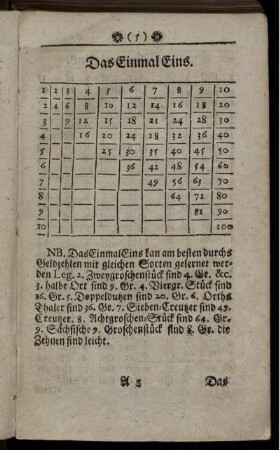 (5)
Das Einmal Eins.
1 2 3 4 5 6 7 8 9 10
2 4 6 8 10 12 14 16 18 20
3 9 12 15 18 21 24 28 30
4 16 20 24 28 32 36 40
5 25 30 35 40 45 50
6 36 42 48 54 60
7 49 56 63 70
8 64 72 80
9 81 90
10 100
NB. Das Einmal Eins kan am besten durchs
Geldzehlen mit gleichen Sorten gelernet wer-
den Log. 2. Zweygroschenstück sind 4. Gr. &c.
3. halbe Ort sind 9. Gr. 4. Viergr. Stück sind
16. Gr. 5. Doppeldutzen sind 20. Gr. 6. Orths
Thaler sind 36. Gr. 7. Sieben-Creutzer sind 49.
Creutzer. 8. Achtgroschen-Stück sind 64. Gr.
9. Sächsische 9. Groschenstück sind 8. Gr. die
Zehnen sind leicht.
A 3 Das